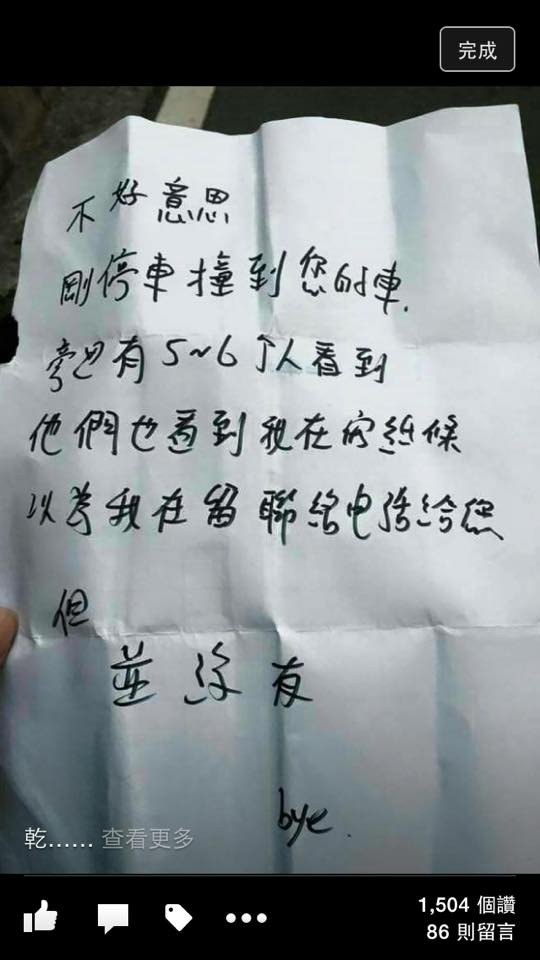 完成
不好意思
剛停車撞到您的車.
旁边有5~6个人看到
他們也看到我在寫紙條
以為我在留聯絡电話給您
但
並沒有
bye.
乾...... 查看更多
1,504 個讚
86 則留言